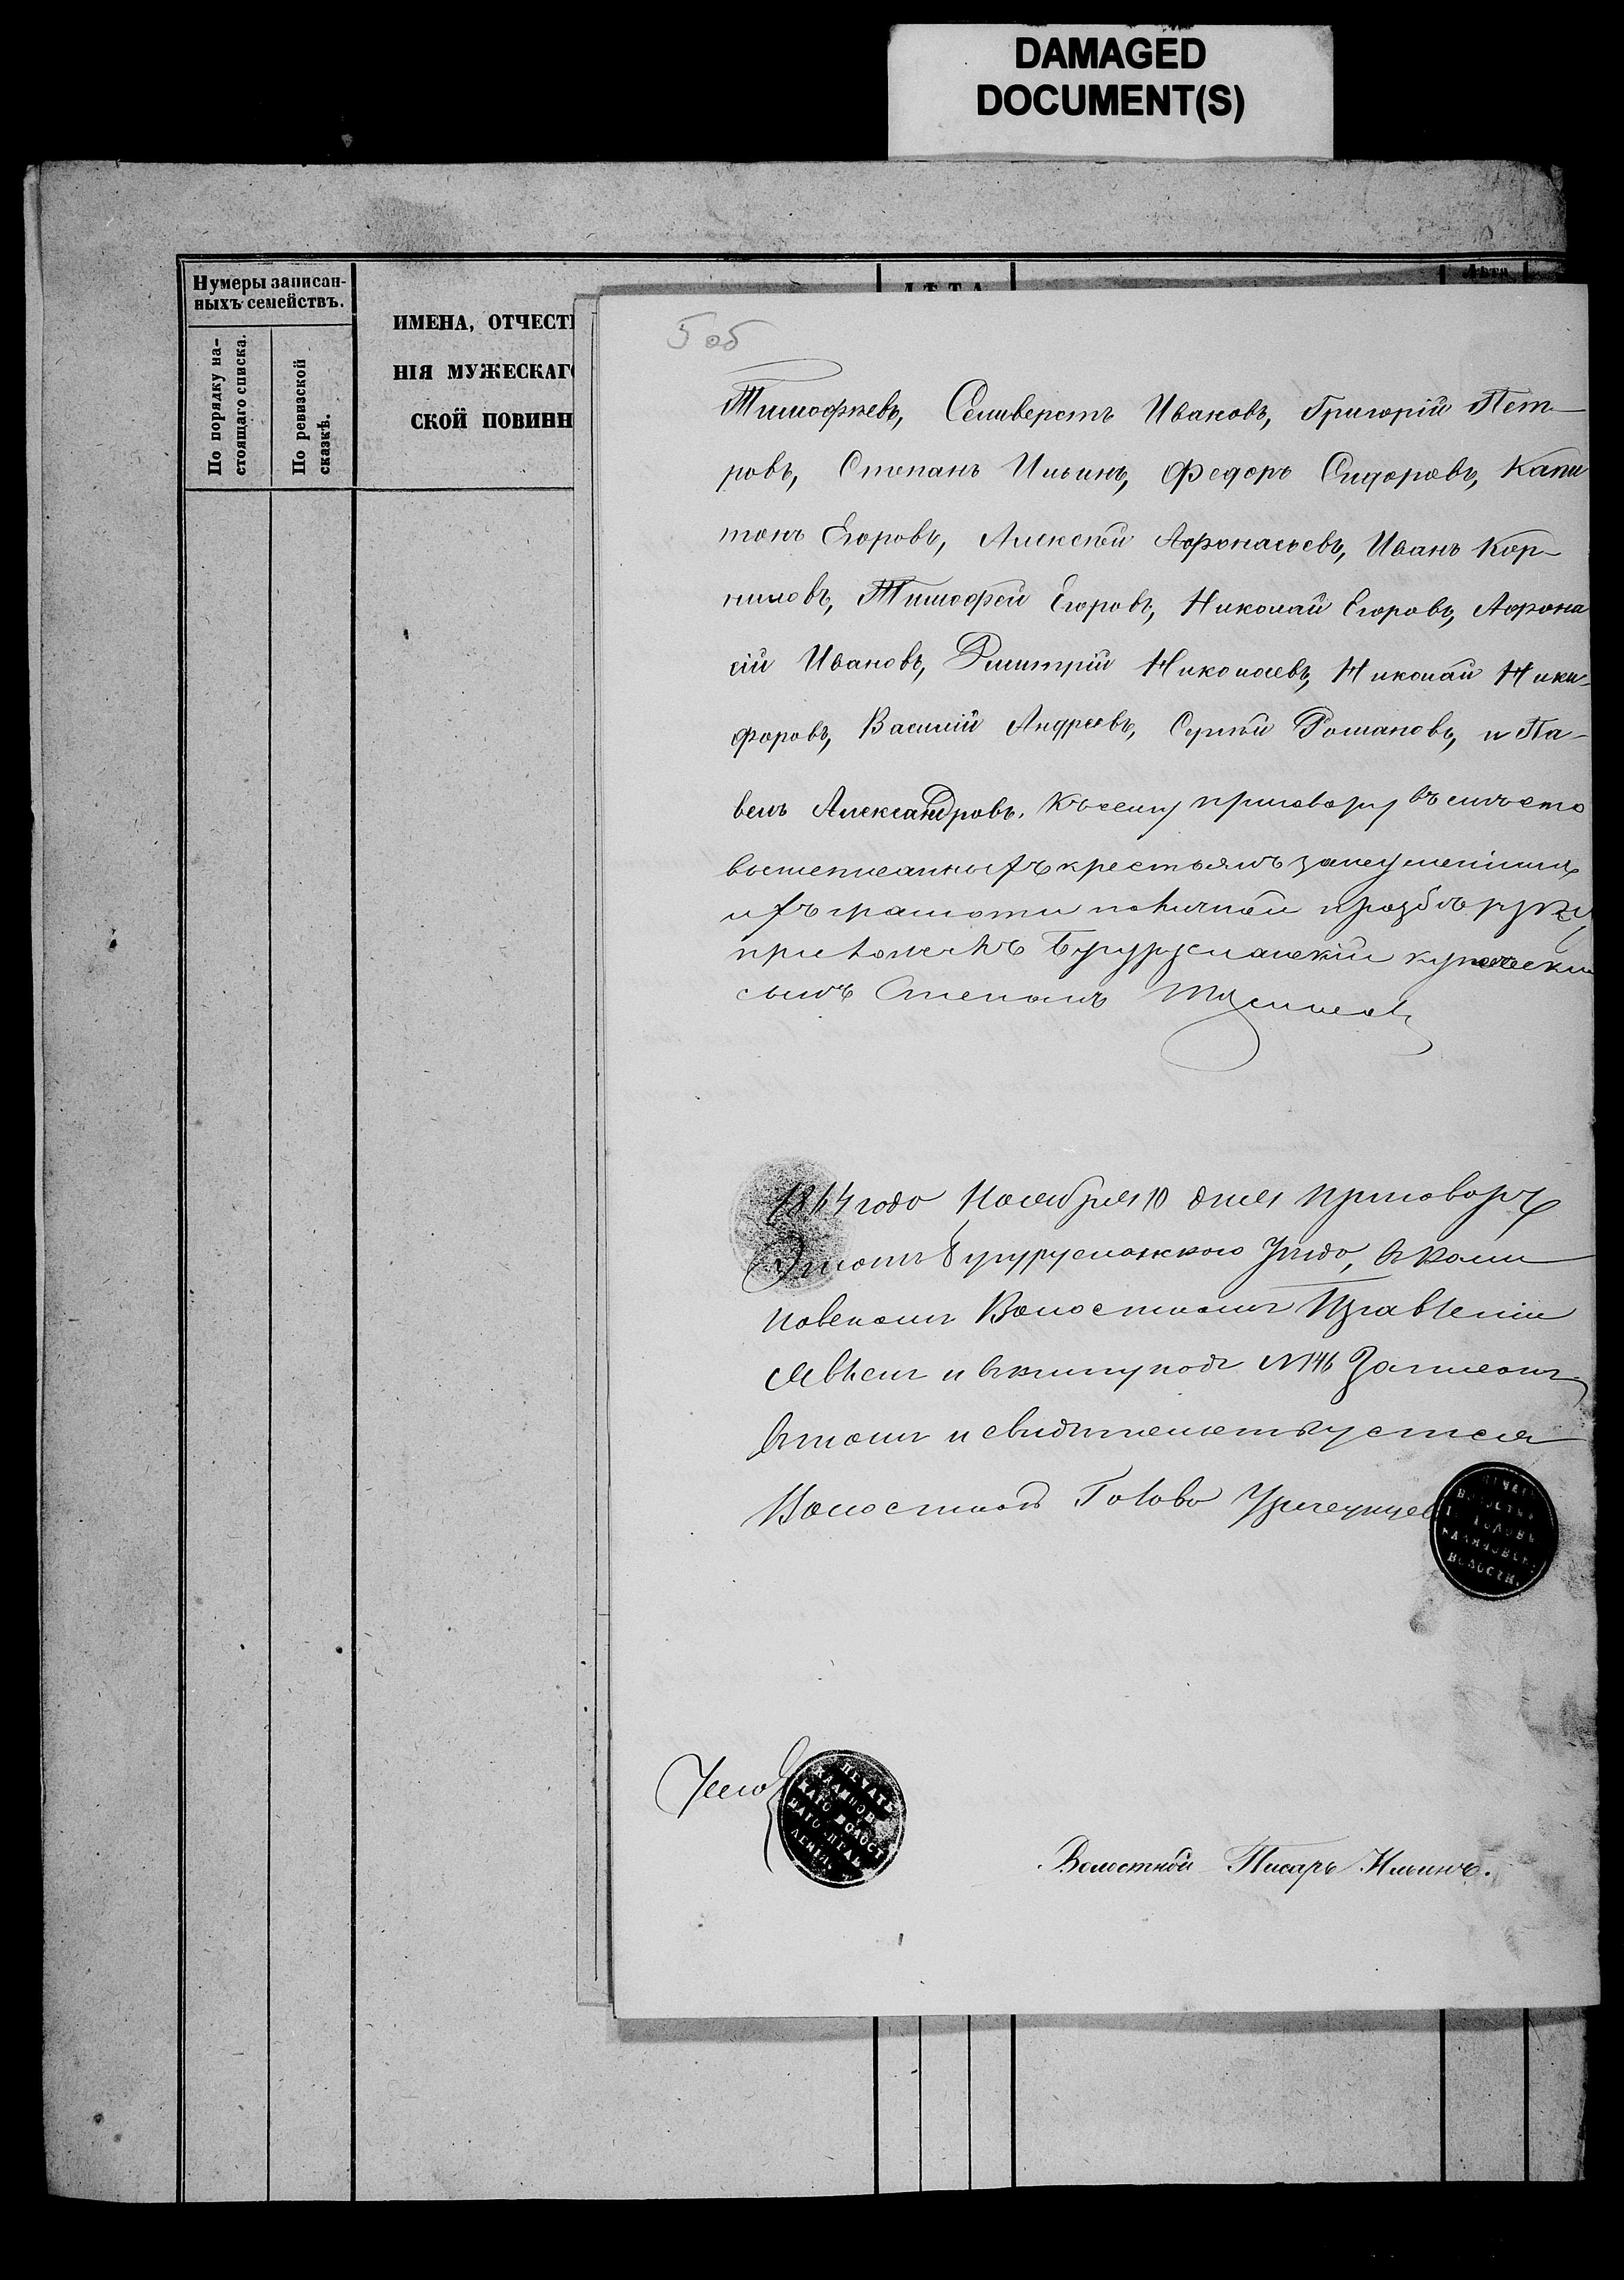 DAMAGED
DOCUMENT(S)
Нумеры записан-
ныхъ семействъ.
По порядку на-
стоящаго списка.
По ревизской
сказкѣ.
ИМЕНА, ОТЧЕСТ
НІЯ МУЖЕСКАГО
СКОЙ ПОВИНН
ЛѢТА
Лѣта
5 об
Тимофѣевъ, Селиверстъ Ивановъ, Григорій Пет-
ровъ, Степанъ Ильинъ, Федоръ Сидоровъ, Капи
тонъ Егоровъ, Алексѣй Афонасьевъ, Иванъ Кор-
ниловъ, Тимофей Егоровъ, Николай Егоровъ, Афона
сій Ивановъ, Дмитрій Николаевъ, Николай Ники-
форовъ, Василій Андреевъ, Сергѣй Романовъ, и Па-
велъ Александровъ. Къ сему приговору въ мѣсто
вышеписанныхъ крестьянъ за неуменіемъ
ихъ грамоти по личной прозбѣ руку
приложилъ Бугурусланскій купеческій
сынъ Степанъ
1864 года Ноября 10 дня приговоръ
Этотъ Бугурусланского Уѣзда, в Кали
новскомъ Волостномъ Правленіи
Явленъ и в книгу подъ №146 Записанъ
в томъ и свидѣтельствуется
Волостной Голова
ПЕЧАТЬ
ВОЛОСТН
ГОЛОВЫ
КАЛИНОВСК.
ВОЛОСТИ.
ПЕЧАТЬ
КАЛИНОВС
КАГО ВОЛОСТ
НАГО ПРАВ
ЛЕНИЯ
Волостной Писарь Ильинъ.